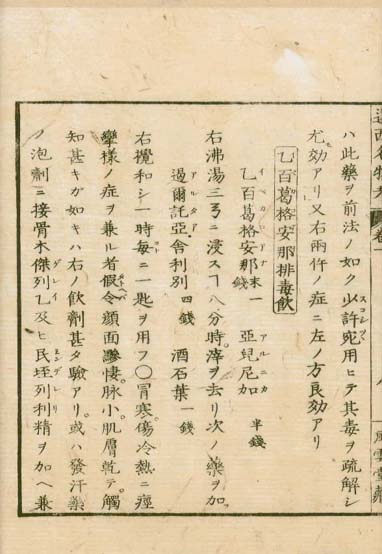 ハ此藥ヲ前法ノ如ク少許宛用ヒテ其毒ヲ疏解シ
尤効アリ又右兩件ノ症ニ左ノ方良効アリ
乙百葛格安那排毒飲
乙百葛格安那 末一錢 亞兒尼加 半錢
右沸湯三弓ニ浸スヿ八分時。滓ヲ去リ次ノ藥ヲ加。
過爾託亞舎利別 四錢 酒石葉 一錢
右攪和シ一時毎ニ一匙ヲ用フ〇冒寒。傷冷熱ニ痙
攣様ノ症ヲ兼ル者假令ヘハ顔面惨悽。脉小。肌膚乾テ觸
知甚キガ如キハ右ノ飲劑甚タ驗アリ。或ハ發汗藥
ノ泡劑ニ接骨木傑列乙及ヒ民垤列利精ヲ加ヘ兼